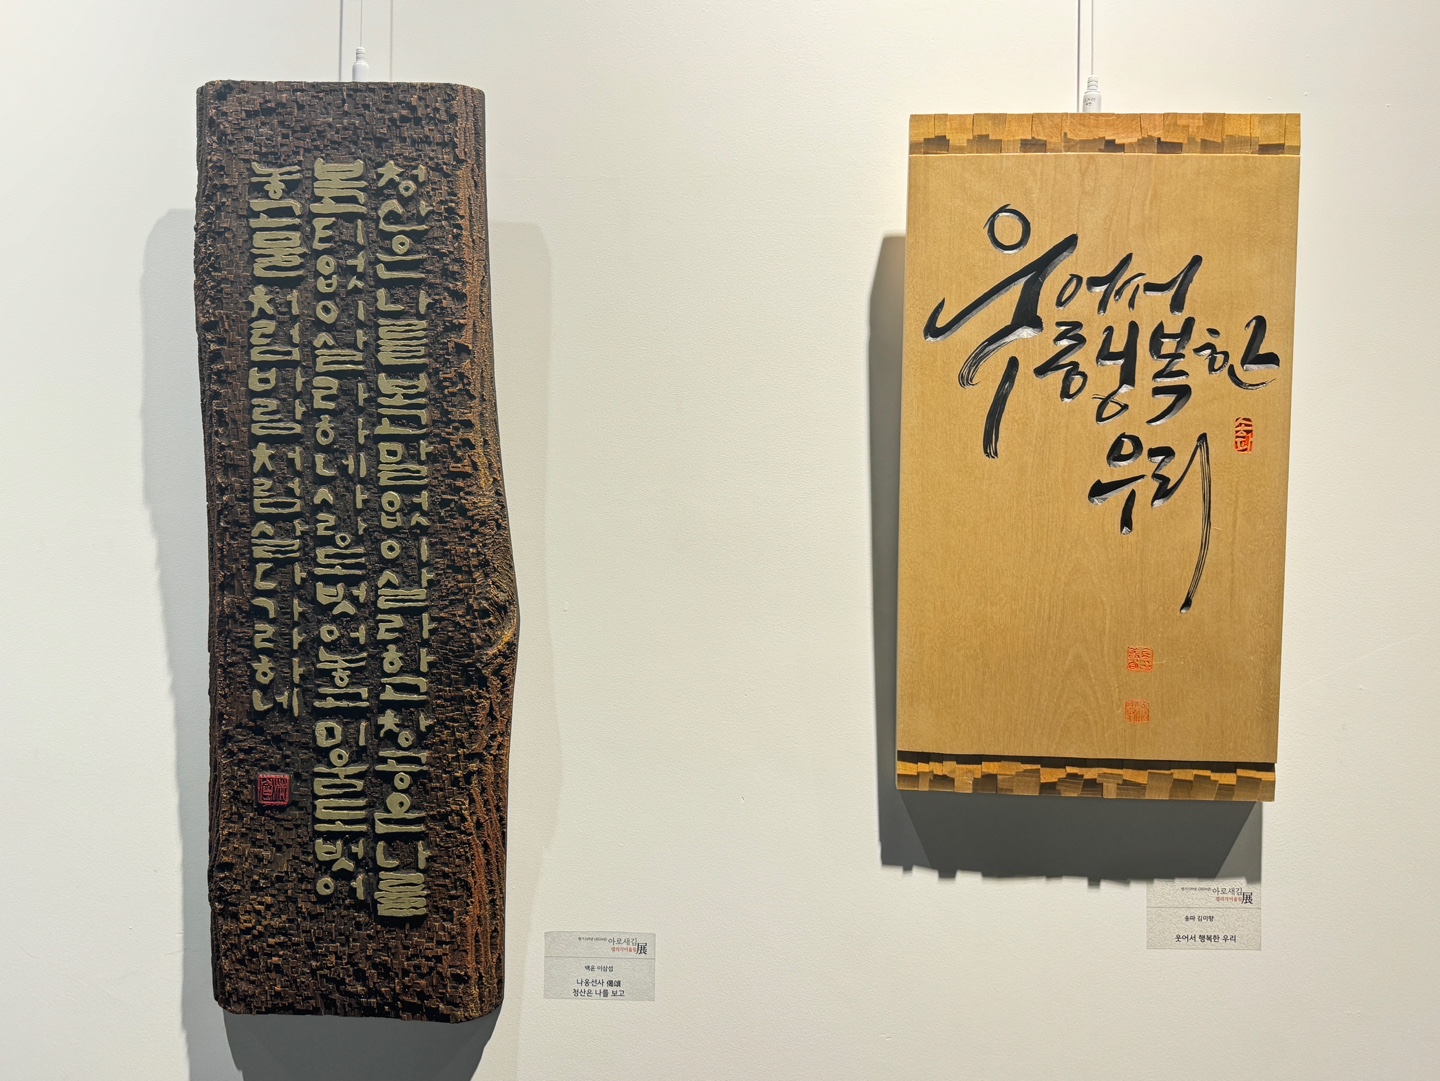 청산은나를보고말없이살라하고창공은나를
보고티없이살라하네사랑도벗어놓고미움도벗어
놓고물처럼바람처럼살다가가라하네
아로새김展
백운 이삼섭
나옹선사 偈頌
청산은 나를 보고
웃어서
행복한
우리
아로새김展
김미향
웃어서 행복한 우리